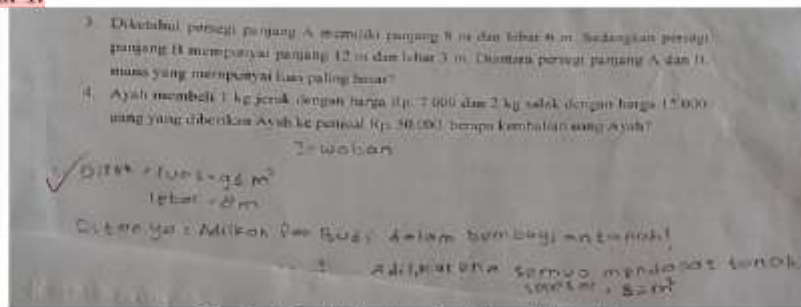 3. Diketahui persegi panjang A memiliki panjang 8 m dan lebar 6 m. Sedangkan persegi
panjang B mempunyai panjang 12 m dan lebar 3 m. Diantara persegi panjang A dan B,
mana yang mempunyai luas paling besar?
4. Ayah membeli 1 kg jeruk dengan harga Rp. 7.000 dan 2 kg salak dengan harga 15.000
uang yang diberikan Ayah ke penjual Rp. 50.000, berapa kembalian uang Ayah?
Jawaban
Diket = luas = 96 m²
lebar = 8 m
Ditanya : Adilkah Pak Budi dalam
Adil, karena semua mendapat tanah